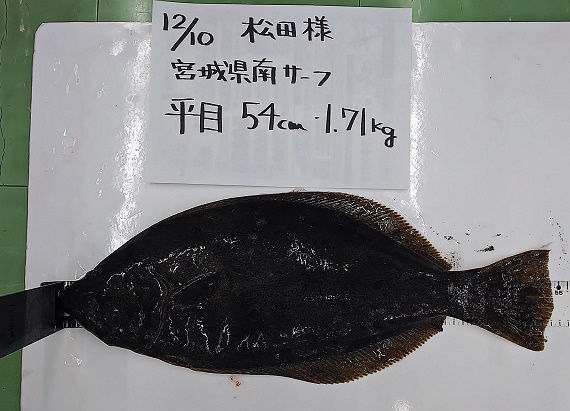 12/10 松田様
宮城県南サーフ
平目 54cm・1.71kg